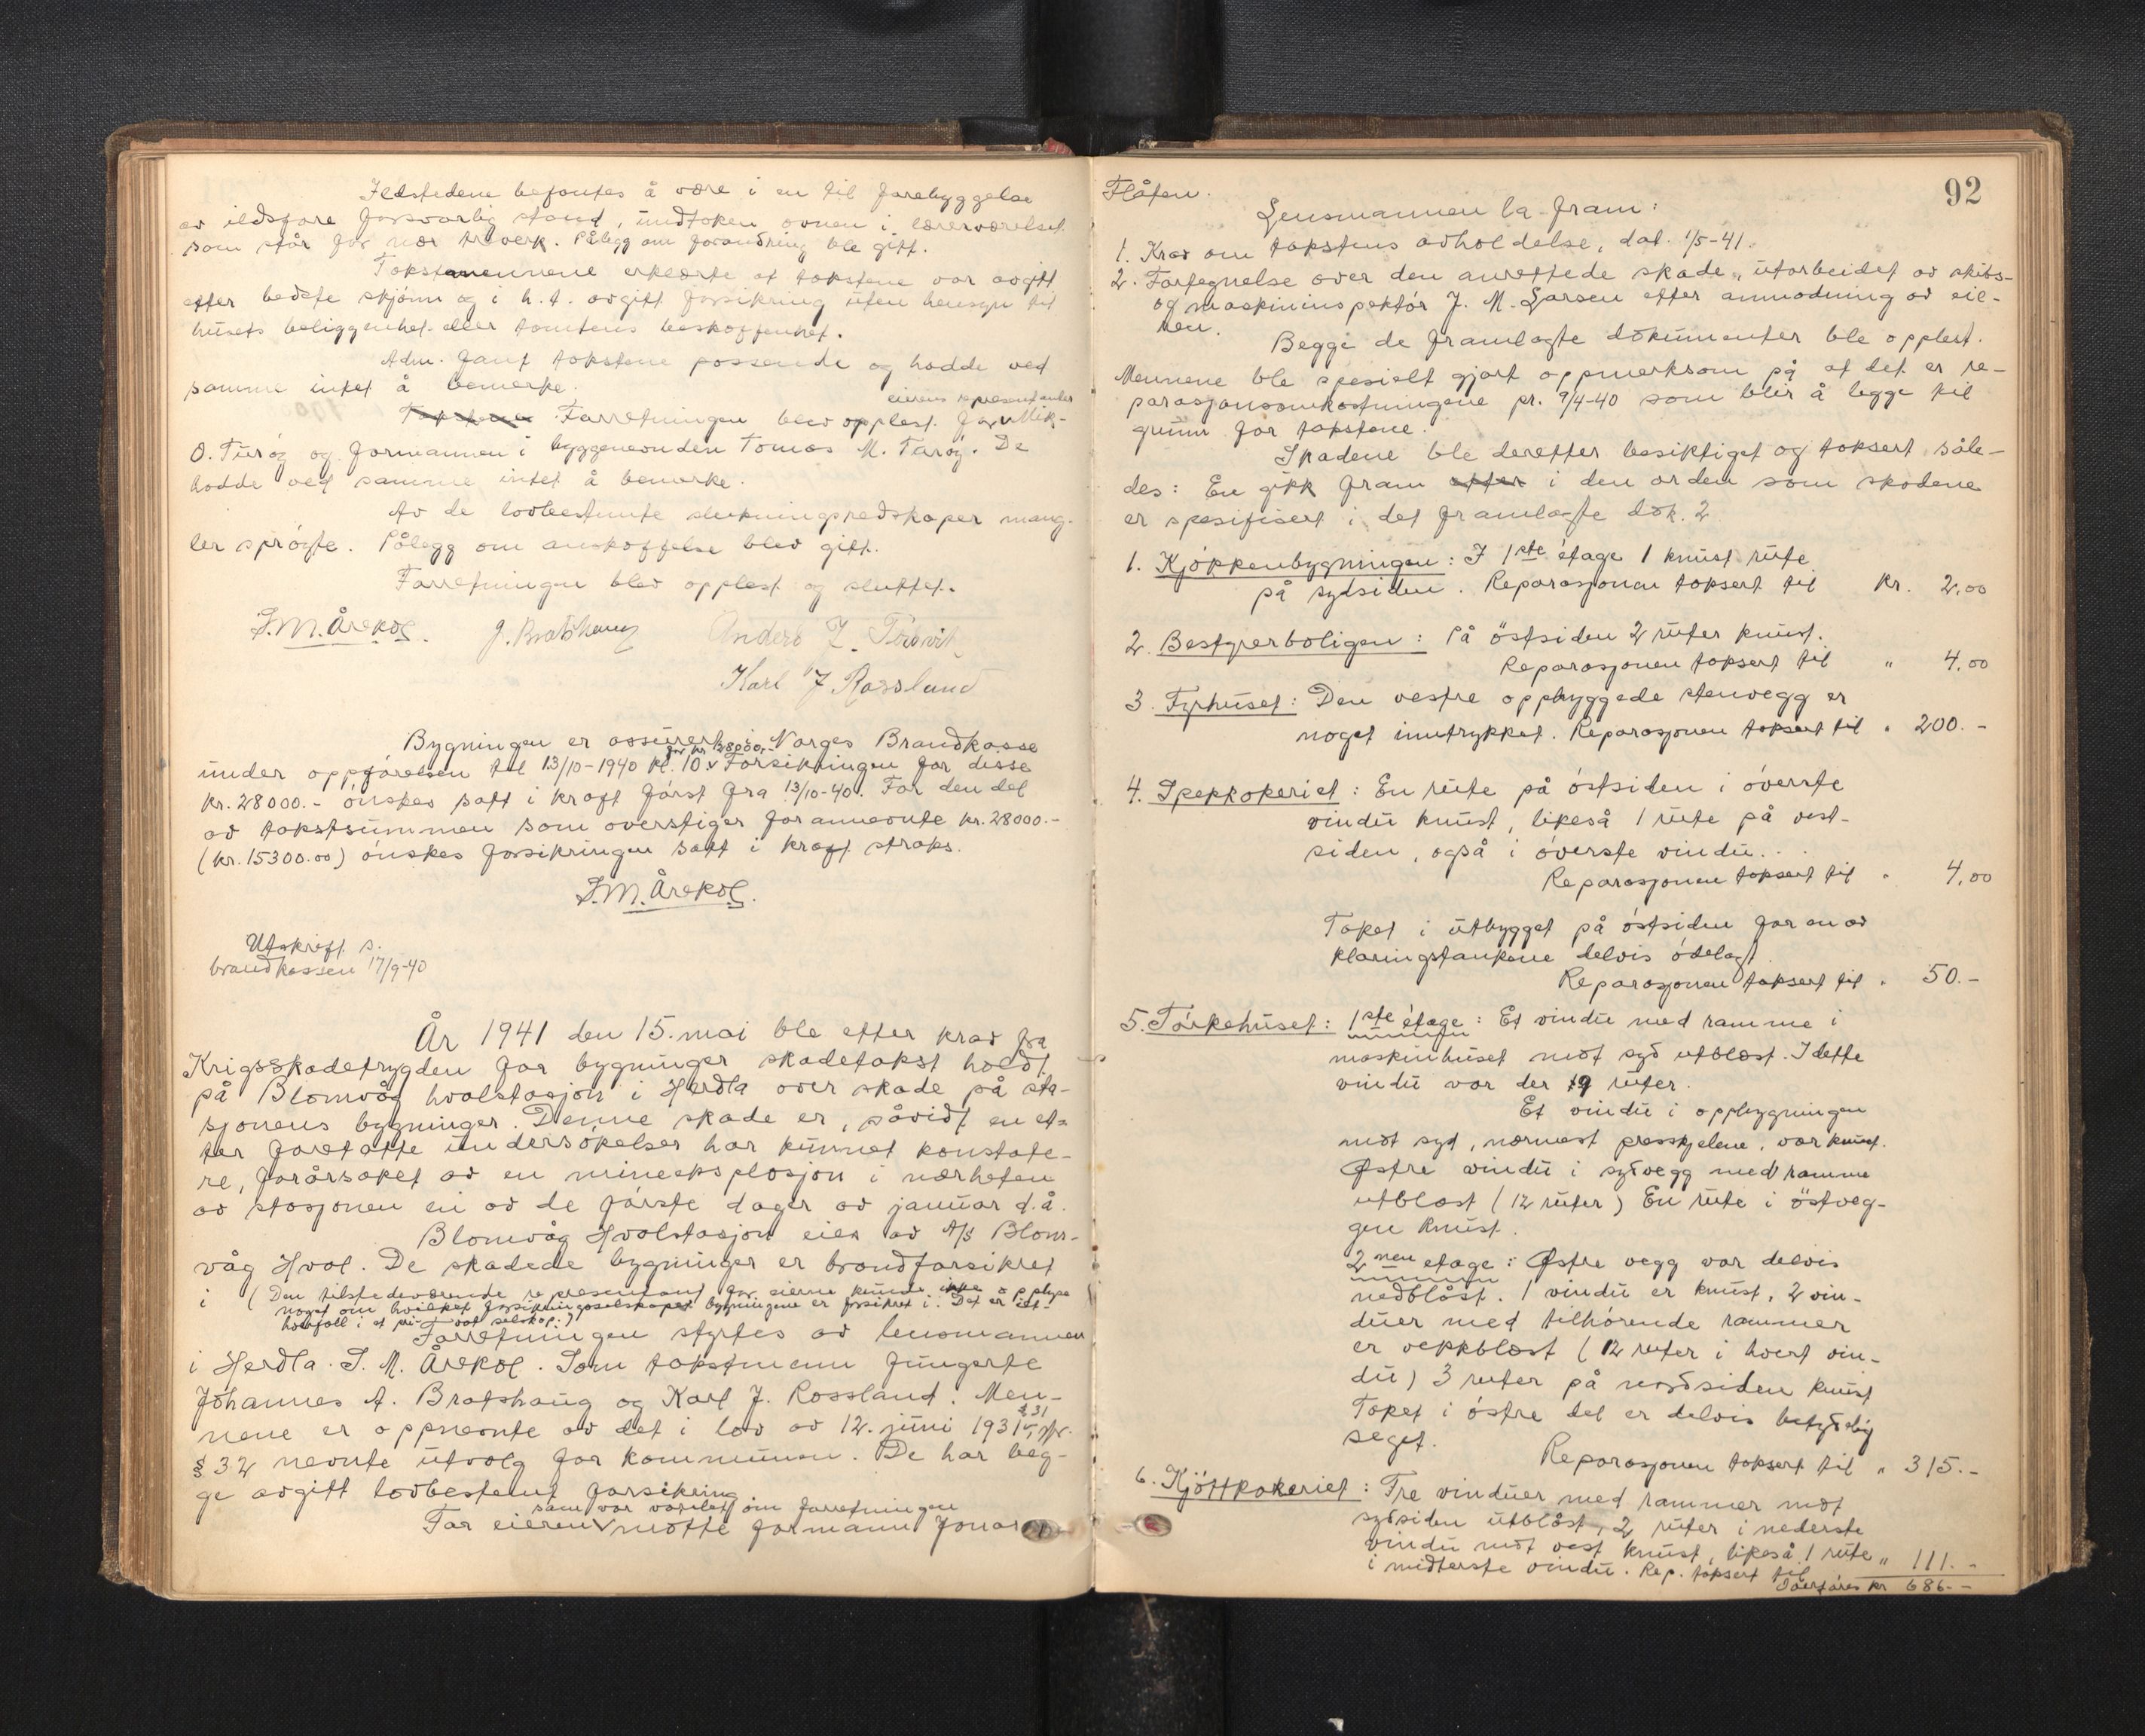 Ildstedene befantes å være i en til forebyggelse
av ildsfare forsvarlig stand, undtaken ovnen i lærerværelset
som står for nær treverk. Pålegg om forandring ble gitt.
Takstmennene erklærte at takstene var avgitt
efter bedste skjönn og i h. t. avgitt forsikring uten hensyn til
husets beliggenhet eller tomtens beskaffenhet.
Adm. fant takstene passende og hadde ved
samme intet å bemerke.
eierens representanter
Takstene Forretningen blev opplest for Mik.
O. Turöy og formannen i byggenevnden Tomas M. Turöy. De
hadde ved samme intet å bemerke.
Av de lovbestemte slukningsredskaper mang-
ler spröyte. Pålegg om anskaffelse blev gitt.
Forretningen blev opplest og sluttet.
S. M. Årskog. J. Bratshaug Anders
Karl J Rossland
Bygningen er assurert i Norges Brandkasse
for kr 28000,-
under oppförelsen til 13/10-1940 kl. 10 v Forsikringen for disse
kr. 28000.- önskes satt i kraft först fra 13/10-40. For den del
av takstsummen som overstiger forannevnte kr. 28000.-
(kr. 15300.00) önskes forsikringen satt i kraft straks.
S. M. Årskog.
Utskrift s.
brandkassen 17/9-40
År 1941 den 15. mai ble etter krav fra
Krigsskadetrygden for bygninger skadetakst holdt
på Blomvåg hvalstasjon i Herdla over skade på sta-
sjonens bygninger. Denne skade er, såvidt en et-
ter foretatte undersökelser har kunnet konstate-
re, forårsaket av en mineeksplosjon i nærheten
av stasjonen en av de förste dager av januar d.å.
Blomvåg Hvalstasjon eies av A/S Blom-
våg Hval. De skadede bygninger er brandforsikret
i (Den tilstedeværende representant for eierne kunde ikke opplyse
noget om hvilket forsikringsselskap bygningene er forsikret i. Det er iet-
hvertfall i et pri- vat selskap.)
Forretningen styrtes av lensmannen
i Herdla S. M. Årskog. Som takstmenn fungerte
Johannes A. Bratshaug og Karl J. Rossland. Men-
§ 31
nene er oppnevnte av det i lov av 12. juni 1931, jfr.
§ 32 nevnte utvalg for kommunen. De har beg-
ge avgitt lovbestemt forsikring
som var varslet om forretningen
For eieren V mötte formann Jonas
92
Flåten.
Lensmannen la fram:
1. Krav om takstens avholdelse, dat. 1/5-41.
2. Fortegnelse over den anrettede skade, utarbeidet av skibs-
og maskininspektör J. M. Larsen etter anmodning av eie-
ren.
Begge de framlagte dokumenter ble opplest.
Mennene ble spesielt gjort oppmerksom på at det er re-
parasjonsomkostningene pr. 9/4-40 som blir å legge til
grunn for takstene.
Skadene ble deretter besiktiget og taksert såle-
des: En gikk fram etter i den orden som skadene
er spesifisert i det framlagte dok. 2
1. Kjökkenbygningen: I 1ste etage 1 knust rute
på sydsiden. Reparasjonen taksert til kr. 2,00
2. Bestyrerboligen: På östsiden 2 ruter knust.
Reparasjonen taksert til " 4,00
3. Fyrhuset: Den vestre oppbyggede stenvegg er
noget inntrykket. Reparasjonen taksert til " 200.-
4. Spekkokeriet: En rute på östsiden i överste
vindu knust, likeså 1 rute på vest-
siden, også i överste vindu.
Reparasjonen taksert til " 4,00
Taket i utbygget på östsiden for en av
klaringstankene delvis ödelagt.
Reparasjonen taksert til " 50.-
5. Törkehuset: 1ste etage: Et vindu med ramme i
maskinhuset mot syd utblåst. I dette
vindu var der 19 ruter.
Et vindu i oppbygningen
mot syd, nærmest presskjelene, var knust.
Østre vindu i sydvegg med ramme
utblåst (12 ruter) En rute i östveg-
gen knust.
2nen etage: Østre vegg var delvis
nedblåst. 1 vindu er knust, 2 vin-
duer med tilhörende rammer
er vekkblåst (12 ruter i hvert vin-
du) 3 ruter på nordsiden knust
Taket i östre del er delvis betydelig
seget.
Reparasjonen taksert til " 315.-
6. Kjöttkokeriet: Tre vinduer med rammer mot
sydsiden utblåst, 2 ruter i nederste
vindu mot vest knust, likeså 1 rute " 111.-
i midterste vindu. Rep. taksert til
Overföres kr 686.-